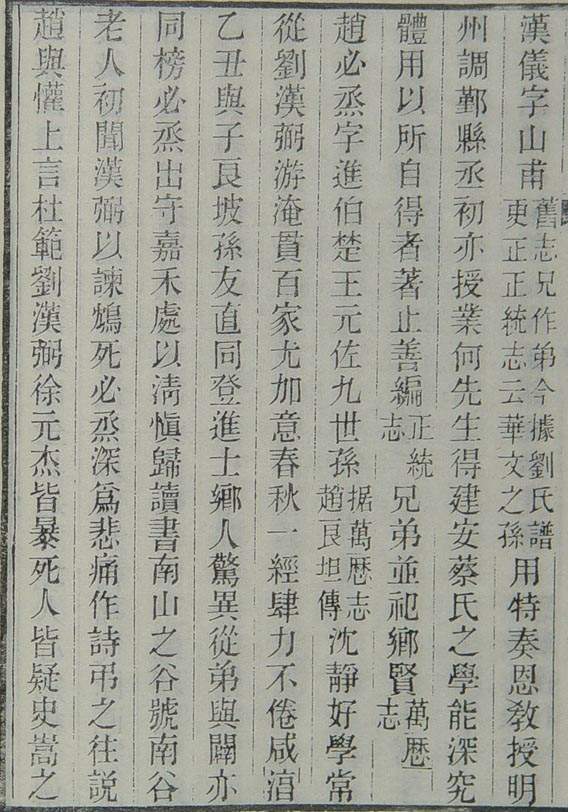 漢儀字山甫舊志兄作弟今據劉氏譜更正正統志云華文之孫用特奏恩教授明
州調鄞縣丞初亦授業何先生得建安蔡氏之學能深究
體用以所自得者著止善編正統志兄弟並祀鄉賢萬歴志
趙必烝字進伯楚王元佐九世孫据萬歴志趙良坦傳沈靜好學常
從劉漢弼游淹貫百家尤加意春秋一經肆力不倦咸淳
乙丑與子良坡孫友直同登進士鄉人驚異從弟與闢亦
同榜必烝出守嘉禾處以清慎歸讀書南山之谷號南谷
老人初聞漢弼以諫鴆死必烝深爲悲痛作詩弔之往説
趙與懽上言杜範劉漢弼徐元杰皆暴死人皆疑史嵩之